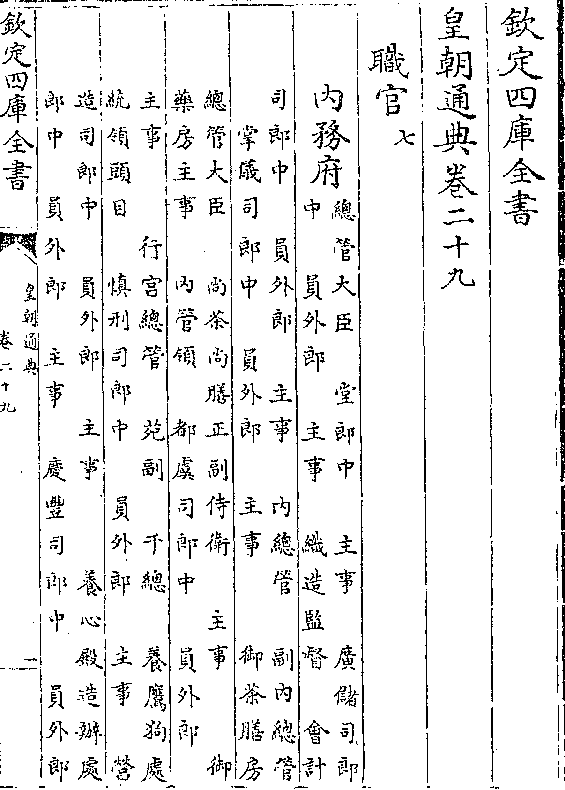 欽定四庫全書
皇朝通典卷二十九
職官七
內務府
總管大臣　堂郎中　主事　廣儲司郎
中　員外郎　主事　織造監督　會計
司郎中　員外郎　主事　內總管　副內總管
掌儀司郎中　員外郎　主事　御茶膳房
總管大臣　尚茶尚膳正副侍衛　主事　御
藥房主事　內管領　都虞司郎中　員外郎
主事　行宮總管　苑副　千總　養鷹狗處
統領頭目　慎刑司郎中　員外郎　主事　營
造司郎中　員外郎　主事　養心殿造辦處
郎中　員外郎　主事　慶豐司郎中　員外郎
欽定四庫全書
皇朝通典
卷二十九
一